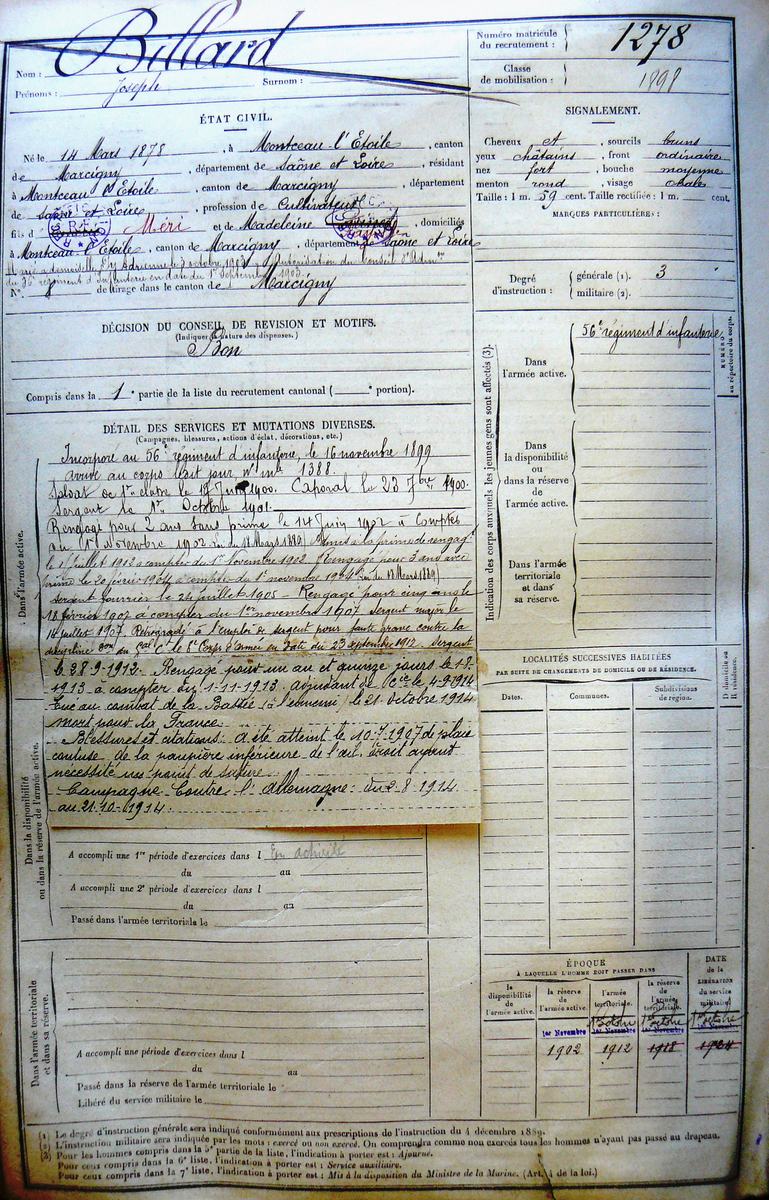 Billard
Nom :
Prénoms : Joseph Surnom :
Numéro matricule du recrutement : 1278
Classe de mobilisation : 1898
ÉTAT CIVIL.
Né le 14 Mars 1878, à Montceau-l'Etoile, canton
de Marcigny, département de Saône et Loire, résidant
à Montceau l'Etoile, canton de Marcigny, département
de Saône et Loire, profession de Cultivateur
fils d Méri et de Madeleine, domiciliés
à Montceau-l'Etoile, canton de Marcigny, département de Saône et Loire
Marié a demoiselle Ey Adrienne le 3 octobre 1903. Autorisation du Conseil d'Adm
du 56 régiment d'Infanterie en date du 1er Septembre 1903.
N° 8 de tirage dans le canton de Marcigny
SIGNALEMENT.
Cheveux et, sourcils bruns
yeux châtains, front ordinaire
nez fort, bouche moyenne
menton rond, visage ovale
Taille : 1 m. 59 cent. Taille rectifiée : 1 m. cent.
MARQUES PARTICULIÈRES :
Degré d'instruction : générale (1). 3
militaire (2).
DÉCISION DU CONSEIL DE REVISION ET MOTIFS.
(Indiquer la nature des dispenses.)
Bon
Compris dans la 1e partie de la liste du recrutement cantonal ( e portion).
DÉTAIL DES SERVICES ET MUTATIONS DIVERSES.
(Campagnes, blessures, actions d'éclat, décorations, etc.)
Dans l'armée active.
Incorporé au 56e régiment d'infanterie, le 16 novembre 1899
arrivé au corps ledit jour n° mle 1388.
Soldat de 1re classe le 1900. Caporal le 23 7bre 1900.
Sergent le 1er Octobre 1901.
Rengagé pour 2 ans sans prime le 14 Juin 1902 à Compter
du 1er Novembre 1902 (Loi du 18 Mars 1889) Admis à la prime de rengagt
le 1 juillet 1903 à compter du 1er Novembre 1902 Rengagé pour 3 ans avec
prime le 20 février 1904 à compter du 1er novembre 1904 (Loi du 18 Mars 1889)
Sergent fourrier le 24 juillet 1905 - Rengagé pour cinq ans le
18 février 1907 à compter du 1er novembre 1907 Sergent major le
14 juillet 1907 Rétrogradé à l'emploi de sergent pour faute grave contre la
discipline Don du Gal Ct le 8e Corps d'armée en date du 23 septembre 1912. Sergent
le 28-9-1912. Rengagé pour un an et quinze jours le
1913 à compter du 1-11-1913. adjudant de Cie le 4-9-1914
Tué au combat de la Bassée (à l'ennemi) le 21 octobre 1914
mort pour la France
Blessures et citations : a été atteint le 10-7-1907 de plaie
contuse de la paupière inférieure de l'œil droit ayant
nécessité un point de suture.
Campagne Contre l'Allemagne : du 2-8-1914
au 21-10-1914.
Dans la disponibilité ou dans la réserve de l'armée active.
A accompli une 1re période d'exercices dans l En activité
du au
A accompli une 2e période d'exercices dans l
du au
Passé dans l'armée territoriale le
Dans l'armée territoriale et dans sa réserve.
A accompli une période d'exercices dans l
du au
Passé dans la réserve de l'armée territoriale le
Libéré du service militaire le
Indication des corps auxquels les jeunes gens sont affectés (3).
Dans l'armée active. 56e régiment d'infanterie
NUMÉRO au répertoire du corps.
Dans la disponibilité ou dans la réserve de l'armée active.
Dans l'armée territoriale et dans sa réserve.
LOCALITÉS SUCCESSIVES HABITÉES
PAR SUITE DE CHANGEMENTS DE DOMICILE OU DE RÉSIDENCE.
Dates. Communes. Subdivisions de région. D domicile ou R résidence.
ÉPOQUE
À LAQUELLE L'HOMME DOIT PASSER DANS
DATE de la LIBÉRATION du service militaire
la disponibilité de l'armée active. la réserve de l'armée active. l'armée territoriale. la réserve de l'armée territoriale.
1er octobre 1er octobre 1er octobre
1er Novembre 1er Novembre 1er Novembre
1902 1912 1918 1924
(1) Le degré d'instruction générale sera indiqué conformément aux prescriptions de l'instruction du 4 décembre 1889.
(2) L'instruction militaire sera indiquée par les mots : exercé ou non exercé. On comprendra comme non exercés tous les hommes n'ayant pas passé au drapeau.
(3) Pour les hommes compris dans la 5e partie de la liste, l'indication à porter est : Ajourné.
Pour ceux compris dans la 6e liste, l'indication à porter est : Service auxiliaire.
Pour ceux compris dans la 7e liste, l'indication à porter est : Mis à la disposition du Ministre de la Marine. (Art. 4 de la loi.)